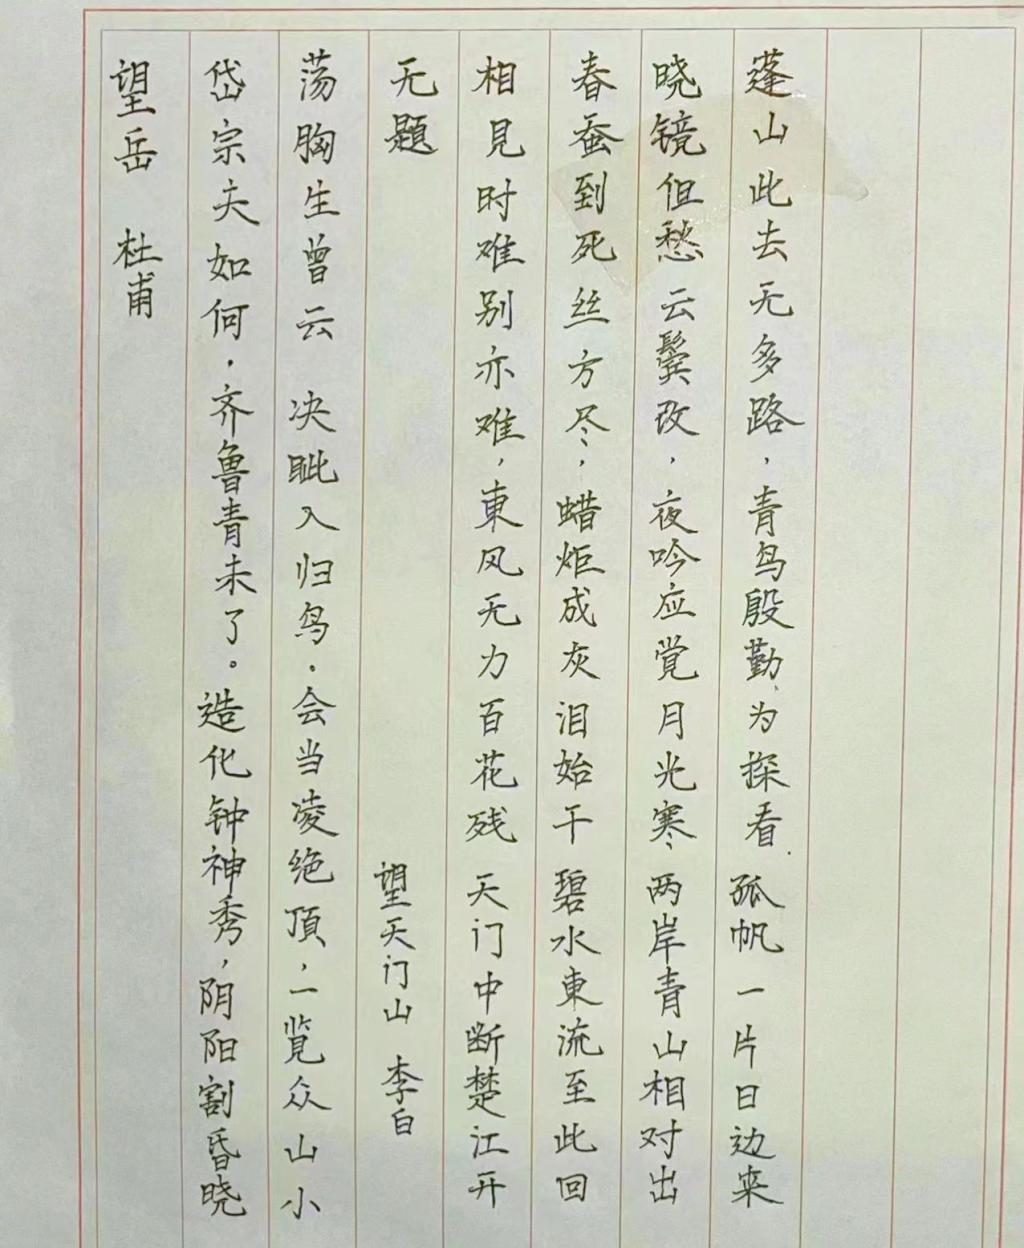 望岳 杜甫
岱宗夫如何.齐鲁青未了。造化钟神秀，阴阳割昏晓
荡胸生曾云 决眦入归鸟.会当凌绝頂，一览众山小
无题
相見时难别亦难，東风无力百花残
春蚕到死丝方尽，蜡炬成灰泪始干
晓镜但愁云鬓改，夜吟应觉月光寒、
蓬山此去无多路，青鸟殷勤、为探看.
望天门山 李白
天门中断楚江开
碧水東流至此回
两岸青山相对出
孤帆一片日边来